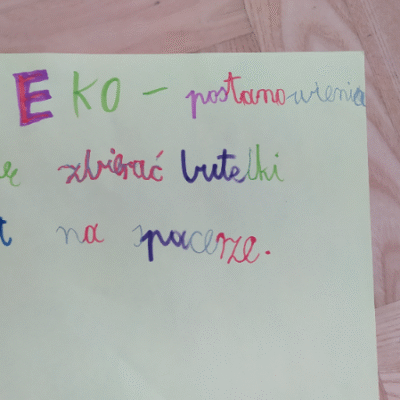 EKO - postanowienia
zbierać butelki
na spacerze.